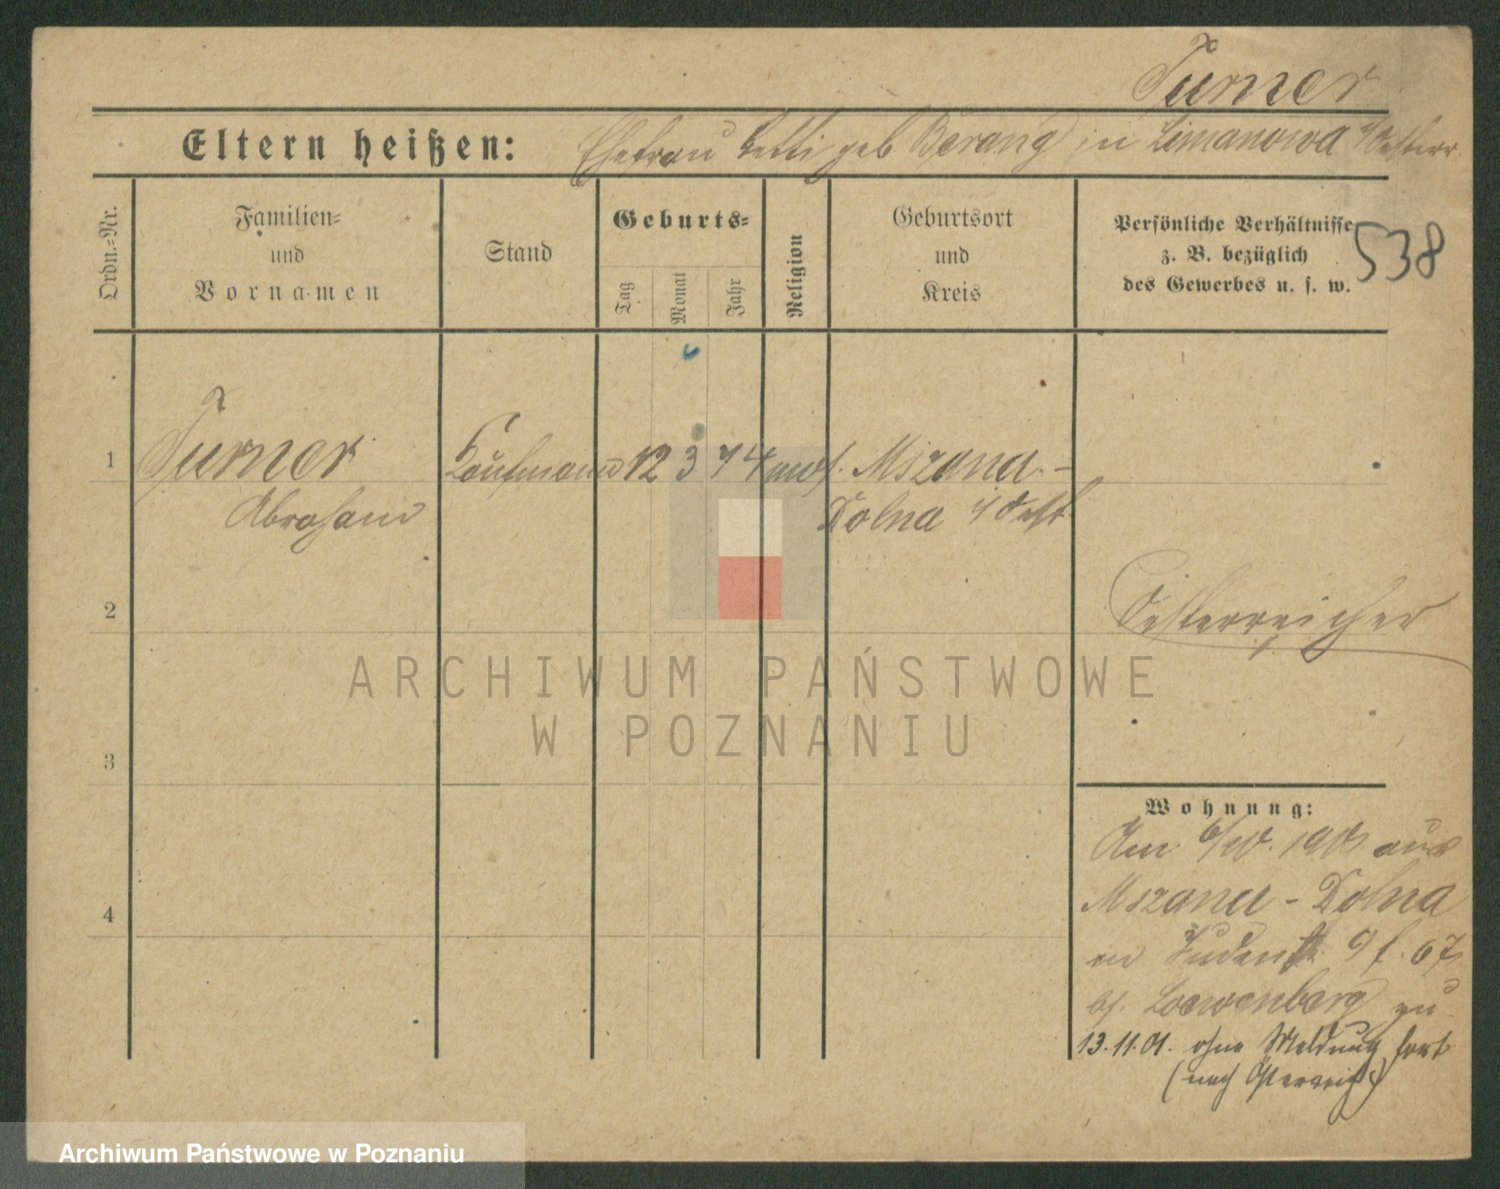 Turner
Eltern heißen: Ehefrau Betti geb Berang in Limanowa i/Oesterr.
Ordn.=Nr.
Familien=
und
Vornamen
Stand
Geburts=
Tag
Monat
Jahr
Religion
Geburtsort
und
Kreis
Persönliche Verhältnisse
z. B. bezüglich
des Gewerbes u. s. w.
538
1 Turner Kaufmann 12 3 74 mos. Mszana-
Abraham Dolna i/Oest
2
Oesterreicher
ARCHIWUM PAŃSTWOWE
W POZNANIU
3
Wohnung:
Am 1901 aus
4 Mszana-Dolna
in Judenstr. 67
bei Loewenberg zu
13.11.01. ohne Meldung fort
(nach Österreich)
Archiwum Państwowe w Poznaniu